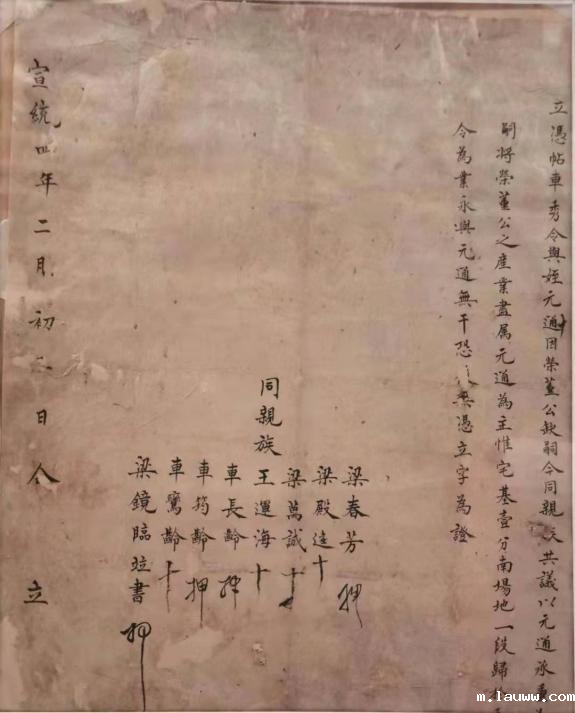 立憑帖車秀令與姪元通因榮董公缺嗣今同親族共議以元通承
嗣將榮董公之產業盡属元通為主惟宅基壹分南場地一段歸
令為業永與元通無干恐後無憑立字為證
梁春芳 押
梁殿 十
梁萬誠 十
同親族 王運海 十
車長齡 押
車筠齡 押
車鷺齡 十
梁鏡臨竝書 押
宣統四年二月初二日仝 立
m.lauww.com